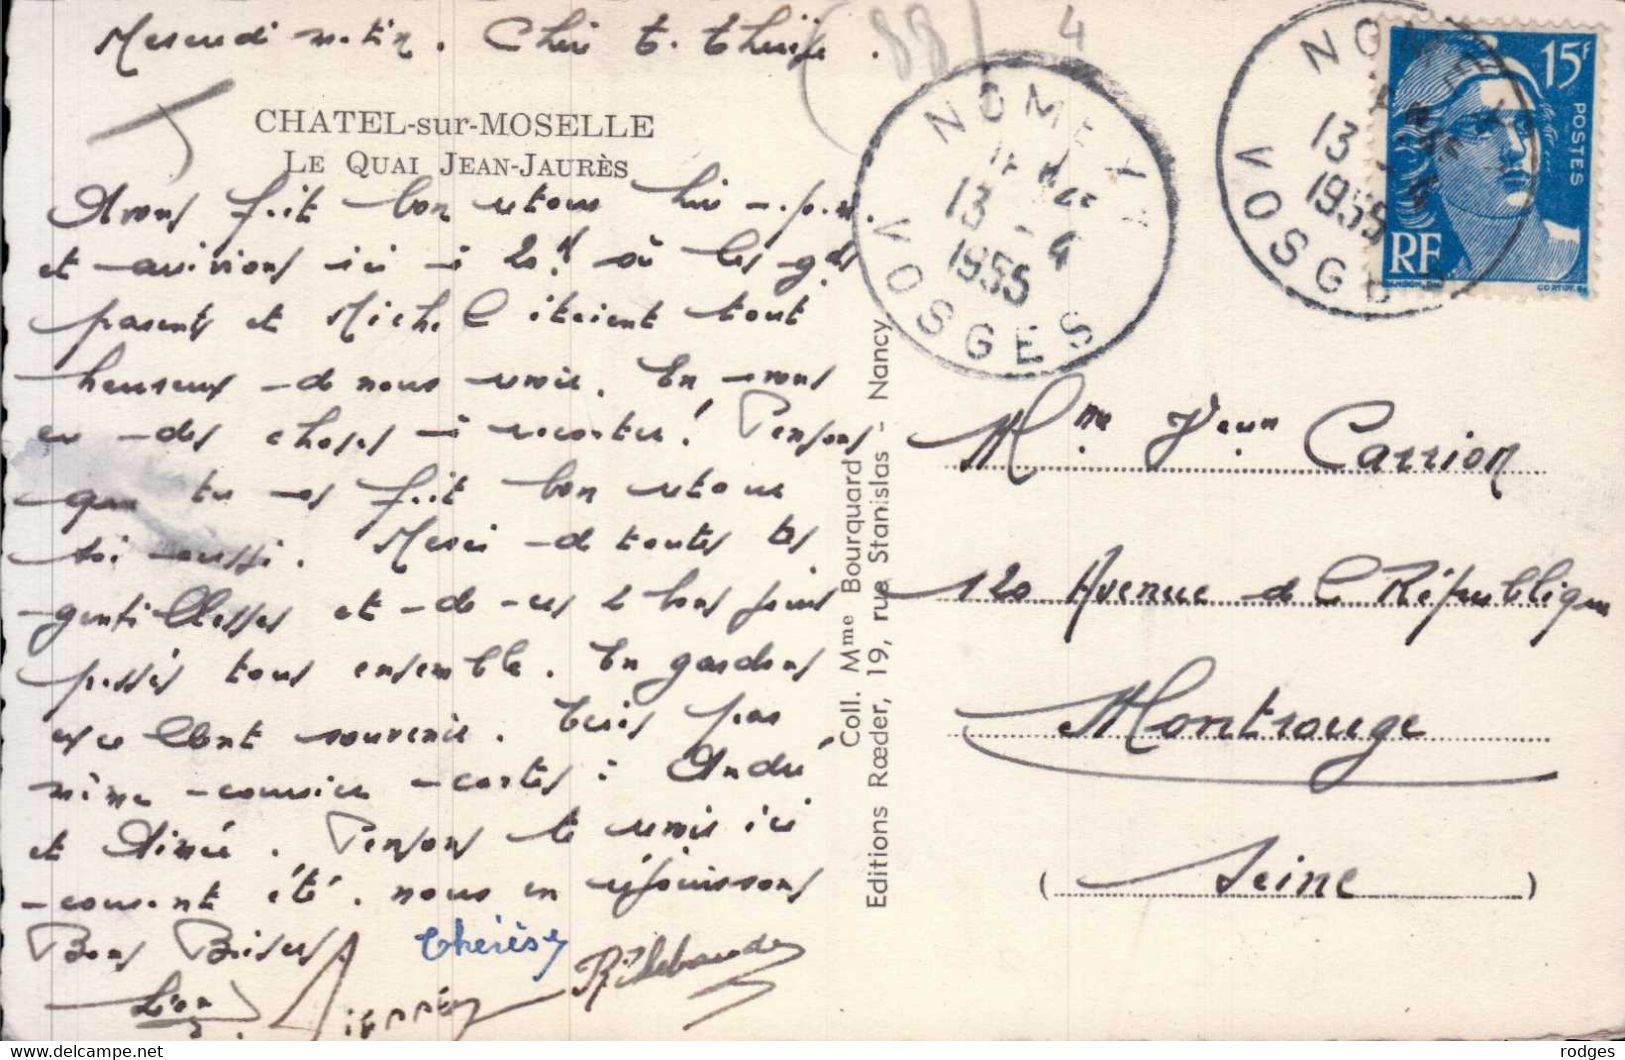 Mercredi matin. Chère t. Thérèse.
(88) 4
CHATEL-sur-MOSELLE
LE QUAI JEAN-JAURÈS
Avons fait bon retour hier a.p.m.
et arrivions ici à 20h où les gds
parents et Michel étaient tout
heureux de nous revoir. En avons
eu des choses à raconter! Pensons
que tu as fait bon retour
toi aussi. Merci de toutes tes
gentillesses et de ces 2 bons jours
passés tous ensemble. En gardons
excellent souvenir. Écris par
même courrier cartes : André
et Aimée. Pensons te revoir ici
courant été. nous en réjouissons
Bons Baisers.
Thérèse
Léon Pierre
Coll. Mme Bourquard
Editions Rœder, 19, rue Stanislas - Nancy
NOMEXY
13 - 4
1955
VOSGES
NOMEXY
13 - 4
1955
VOSGES
15F
POSTES
RF
GANDON
CORTOT
Mme Jean Carrion
120 Avenue de la République
Montrouge
(Seine)
www.delcampe.net
rodges